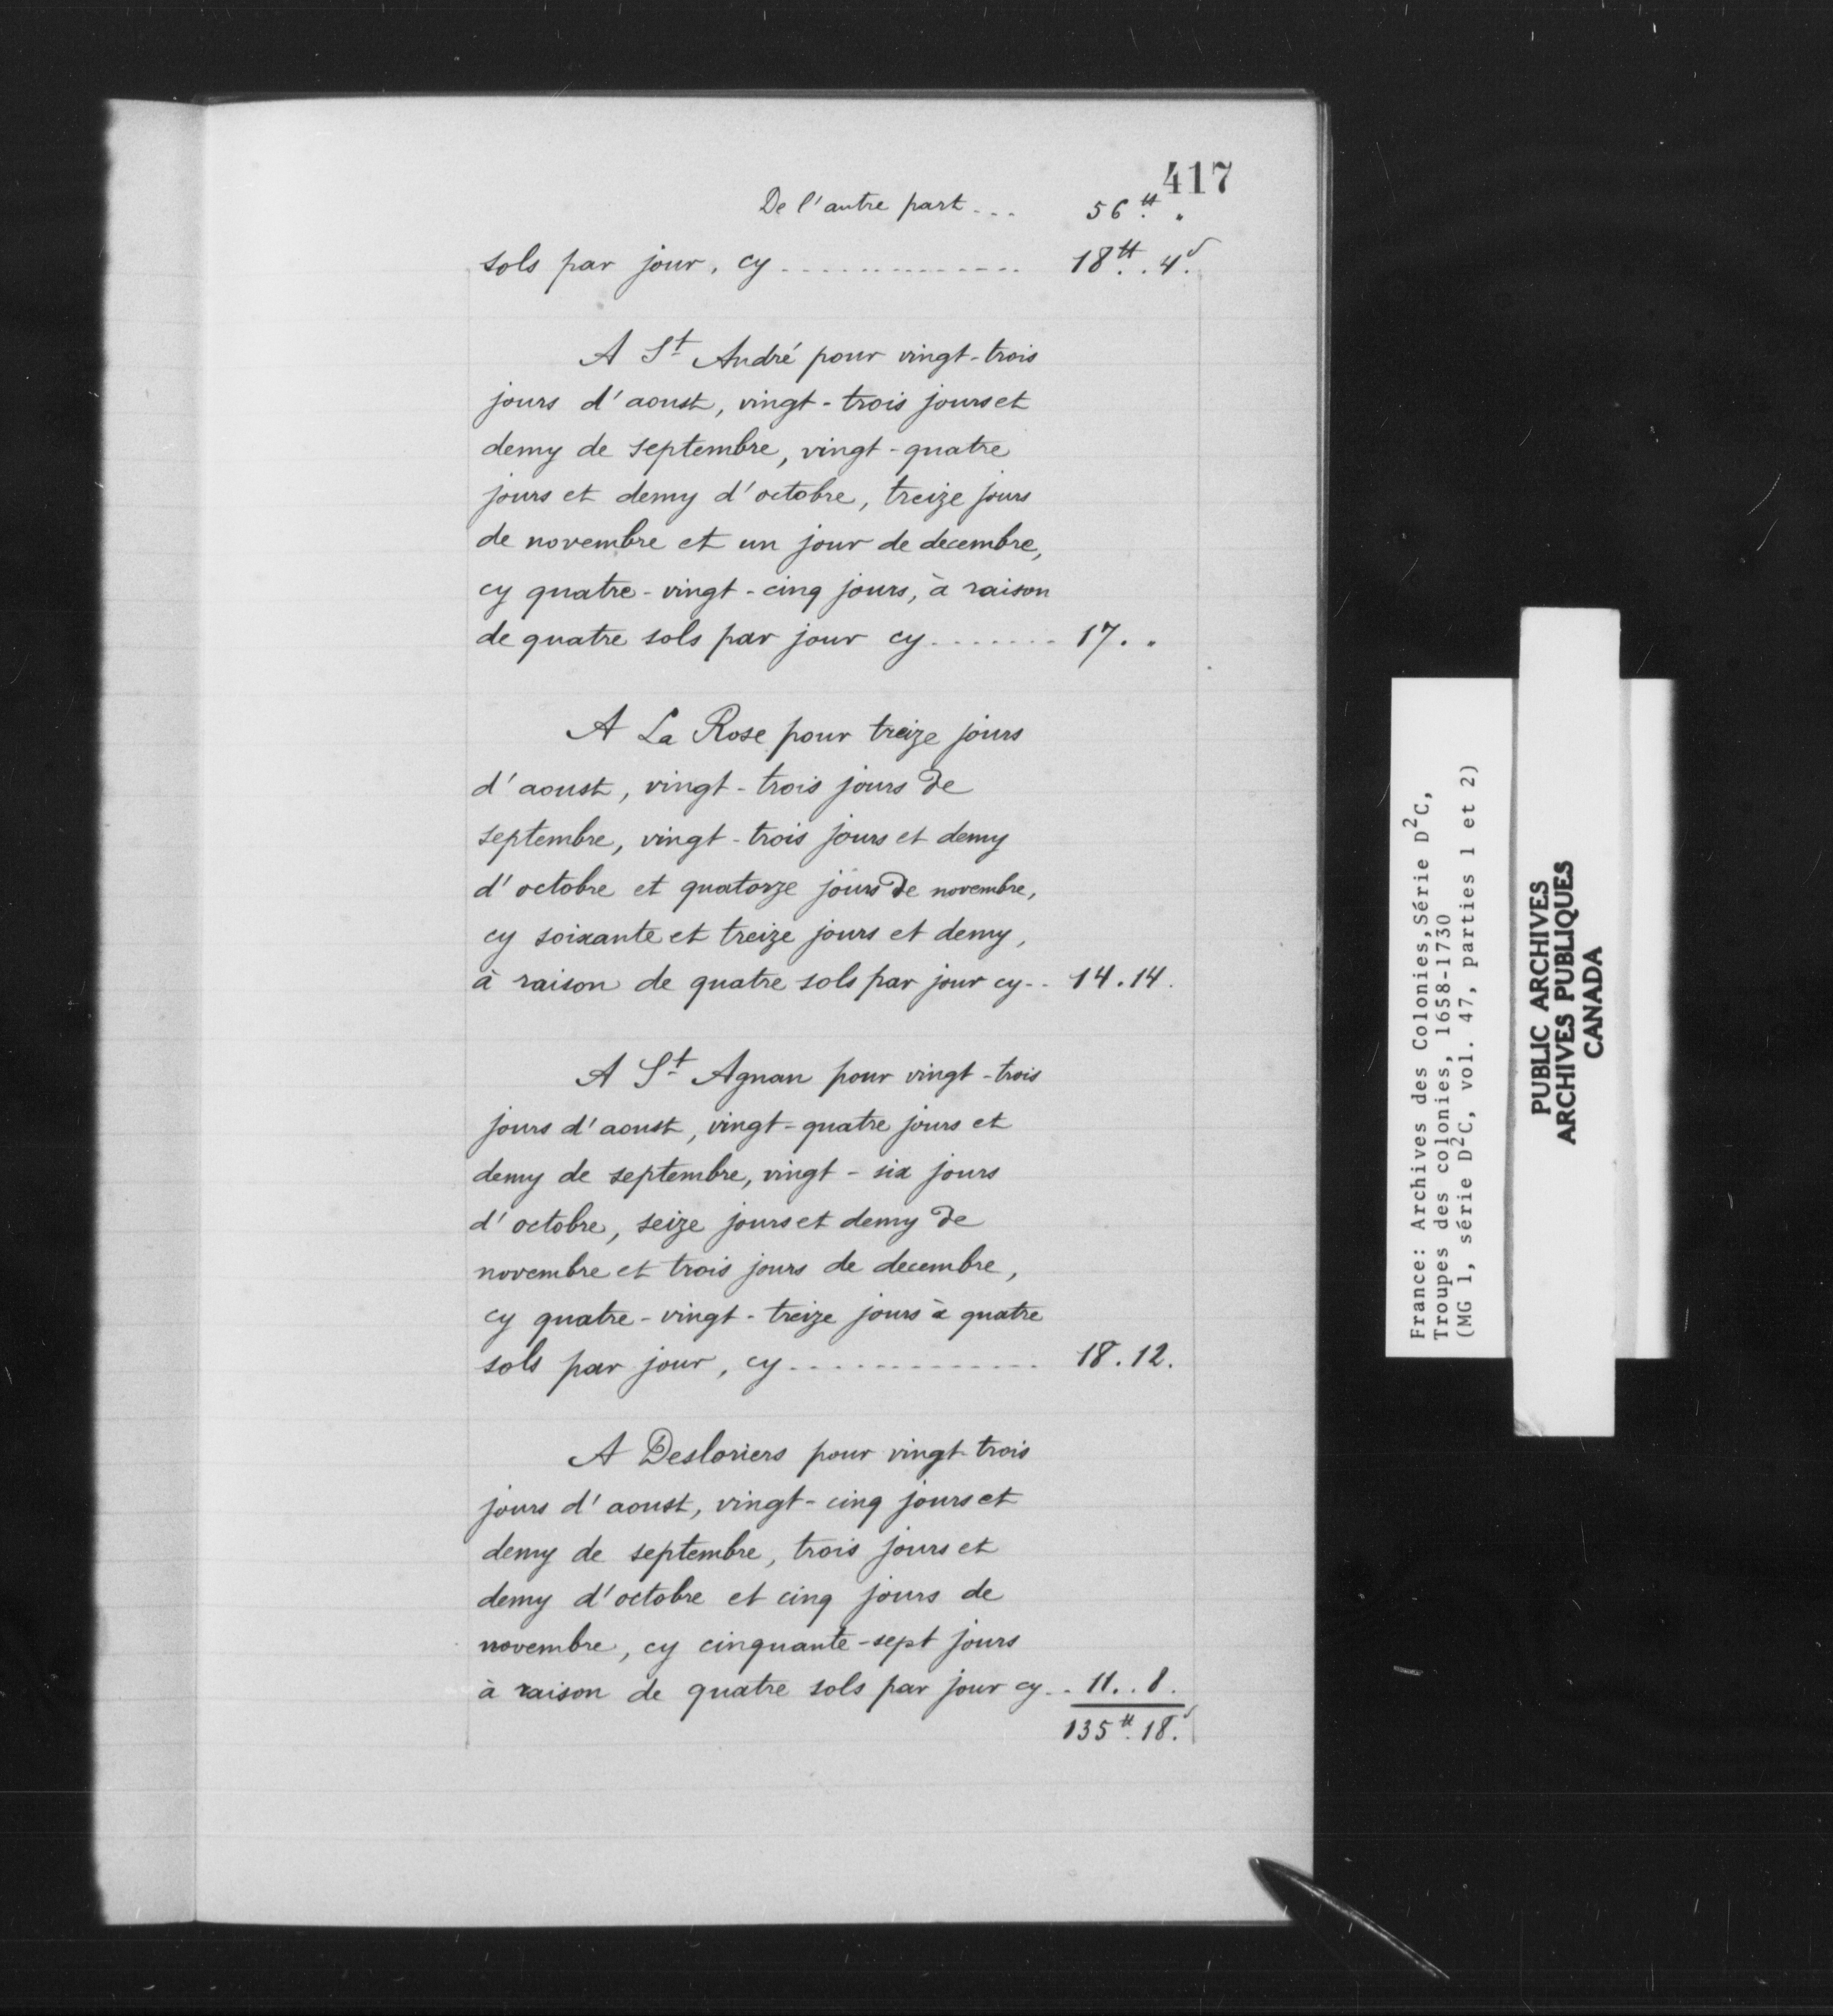 417
De l'autre part... 56 ₶. .
sols par jour, cy.............. 18 ₶. 4.s
A St André pour vingt-trois
jours d'aoust, vingt-trois jours et
demy de septembre, vingt-quatre
jours et demy d'octobre, treize jours
de novembre et un jour de decembre,
cy quatre-vingt-cinq jours, à raison
de quatre sols par jour cy....... 17. .
A La Rose pour treize jours
d'aoust, vingt-trois jours de
septembre, vingt-trois jours et demy
d'octobre et quatorze jours de novembre,
cy soixante et treize jours et demy,
à raison de quatre sols par jour cy.. 14.14.
A St Agnan pour vingt-trois
jours d'aoust, vingt-quatre jours et
demy de septembre, vingt-six jours
d'octobre, seize jours et demy de
novembre et trois jours de decembre,
cy quatre-vingt-treize jours à quatre
sols par jour, cy.............. 18.12.
A Desloriers pour vingt-trois
jours d'aoust, vingt-cinq jours et
demy de septembre, trois jours et
demy d'octobre et cinq jours de
novembre, cy cinquante-sept jours
à raison de quatre sols par jour cy.. 11..8.
135 ₶. 18.s
France: Archives des Colonies, Série D²C,
Troupes des colonies, 1658-1730
(MG 1, série D²C, vol. 47, parties 1 et 2)
PUBLIC ARCHIVES
ARCHIVES PUBLIQUES
CANADA